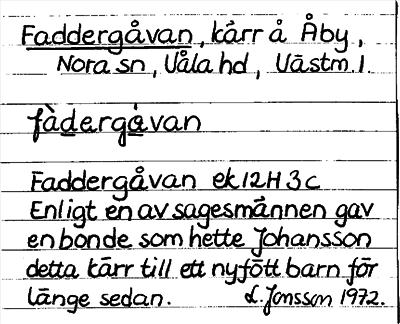 Faddergåvan, kärr å Åby,
Nora sn, Våla hd, Västm. l
fàdergǻvan
Faddergåvan ek 12H 3c
Enligt en av sagesmännen gav
en bonde som hette Johansson
detta kärr till ett nyfött barn för
länge sedan. L. Jonsson 1972.